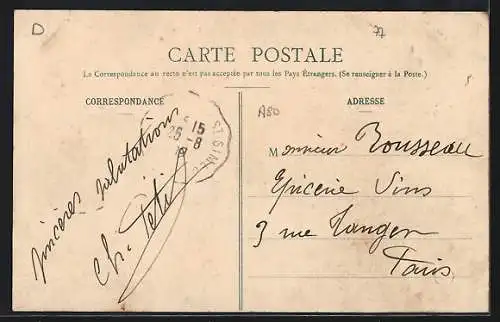 D
77
CARTE POSTALE
La Correspondance au recto n'est pas acceptée par tous les Pays Étrangers. (Se renseigner à la Poste.)
CORRESPONDANCE
ADRESSE
A80
15
26-8
ST SIME
Sincères salutations
Ch. Petit
Monsieur Rousseau
Epicerie Vins
3 rue Tanger
Paris